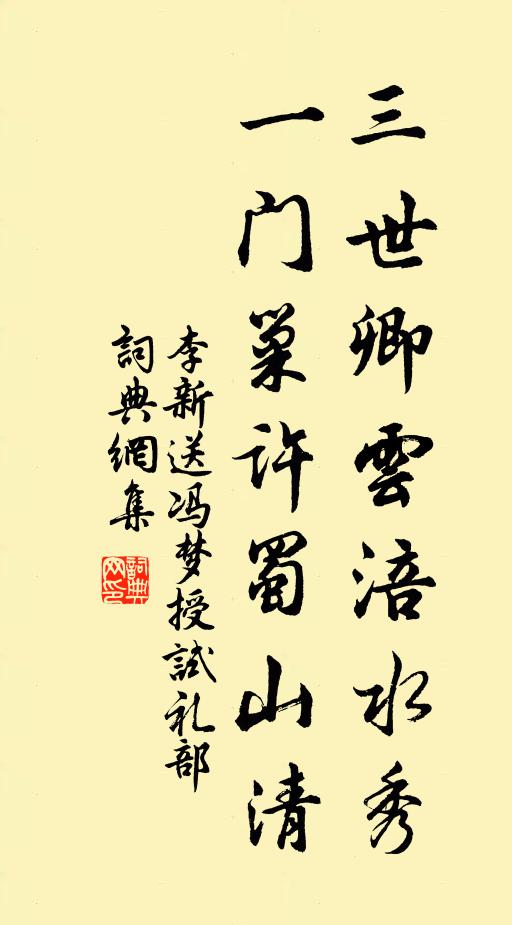 三世卿雲涪水秀
一门巢许蜀山清
李新送冯梦授試礼部
詞典網集
詞典网印